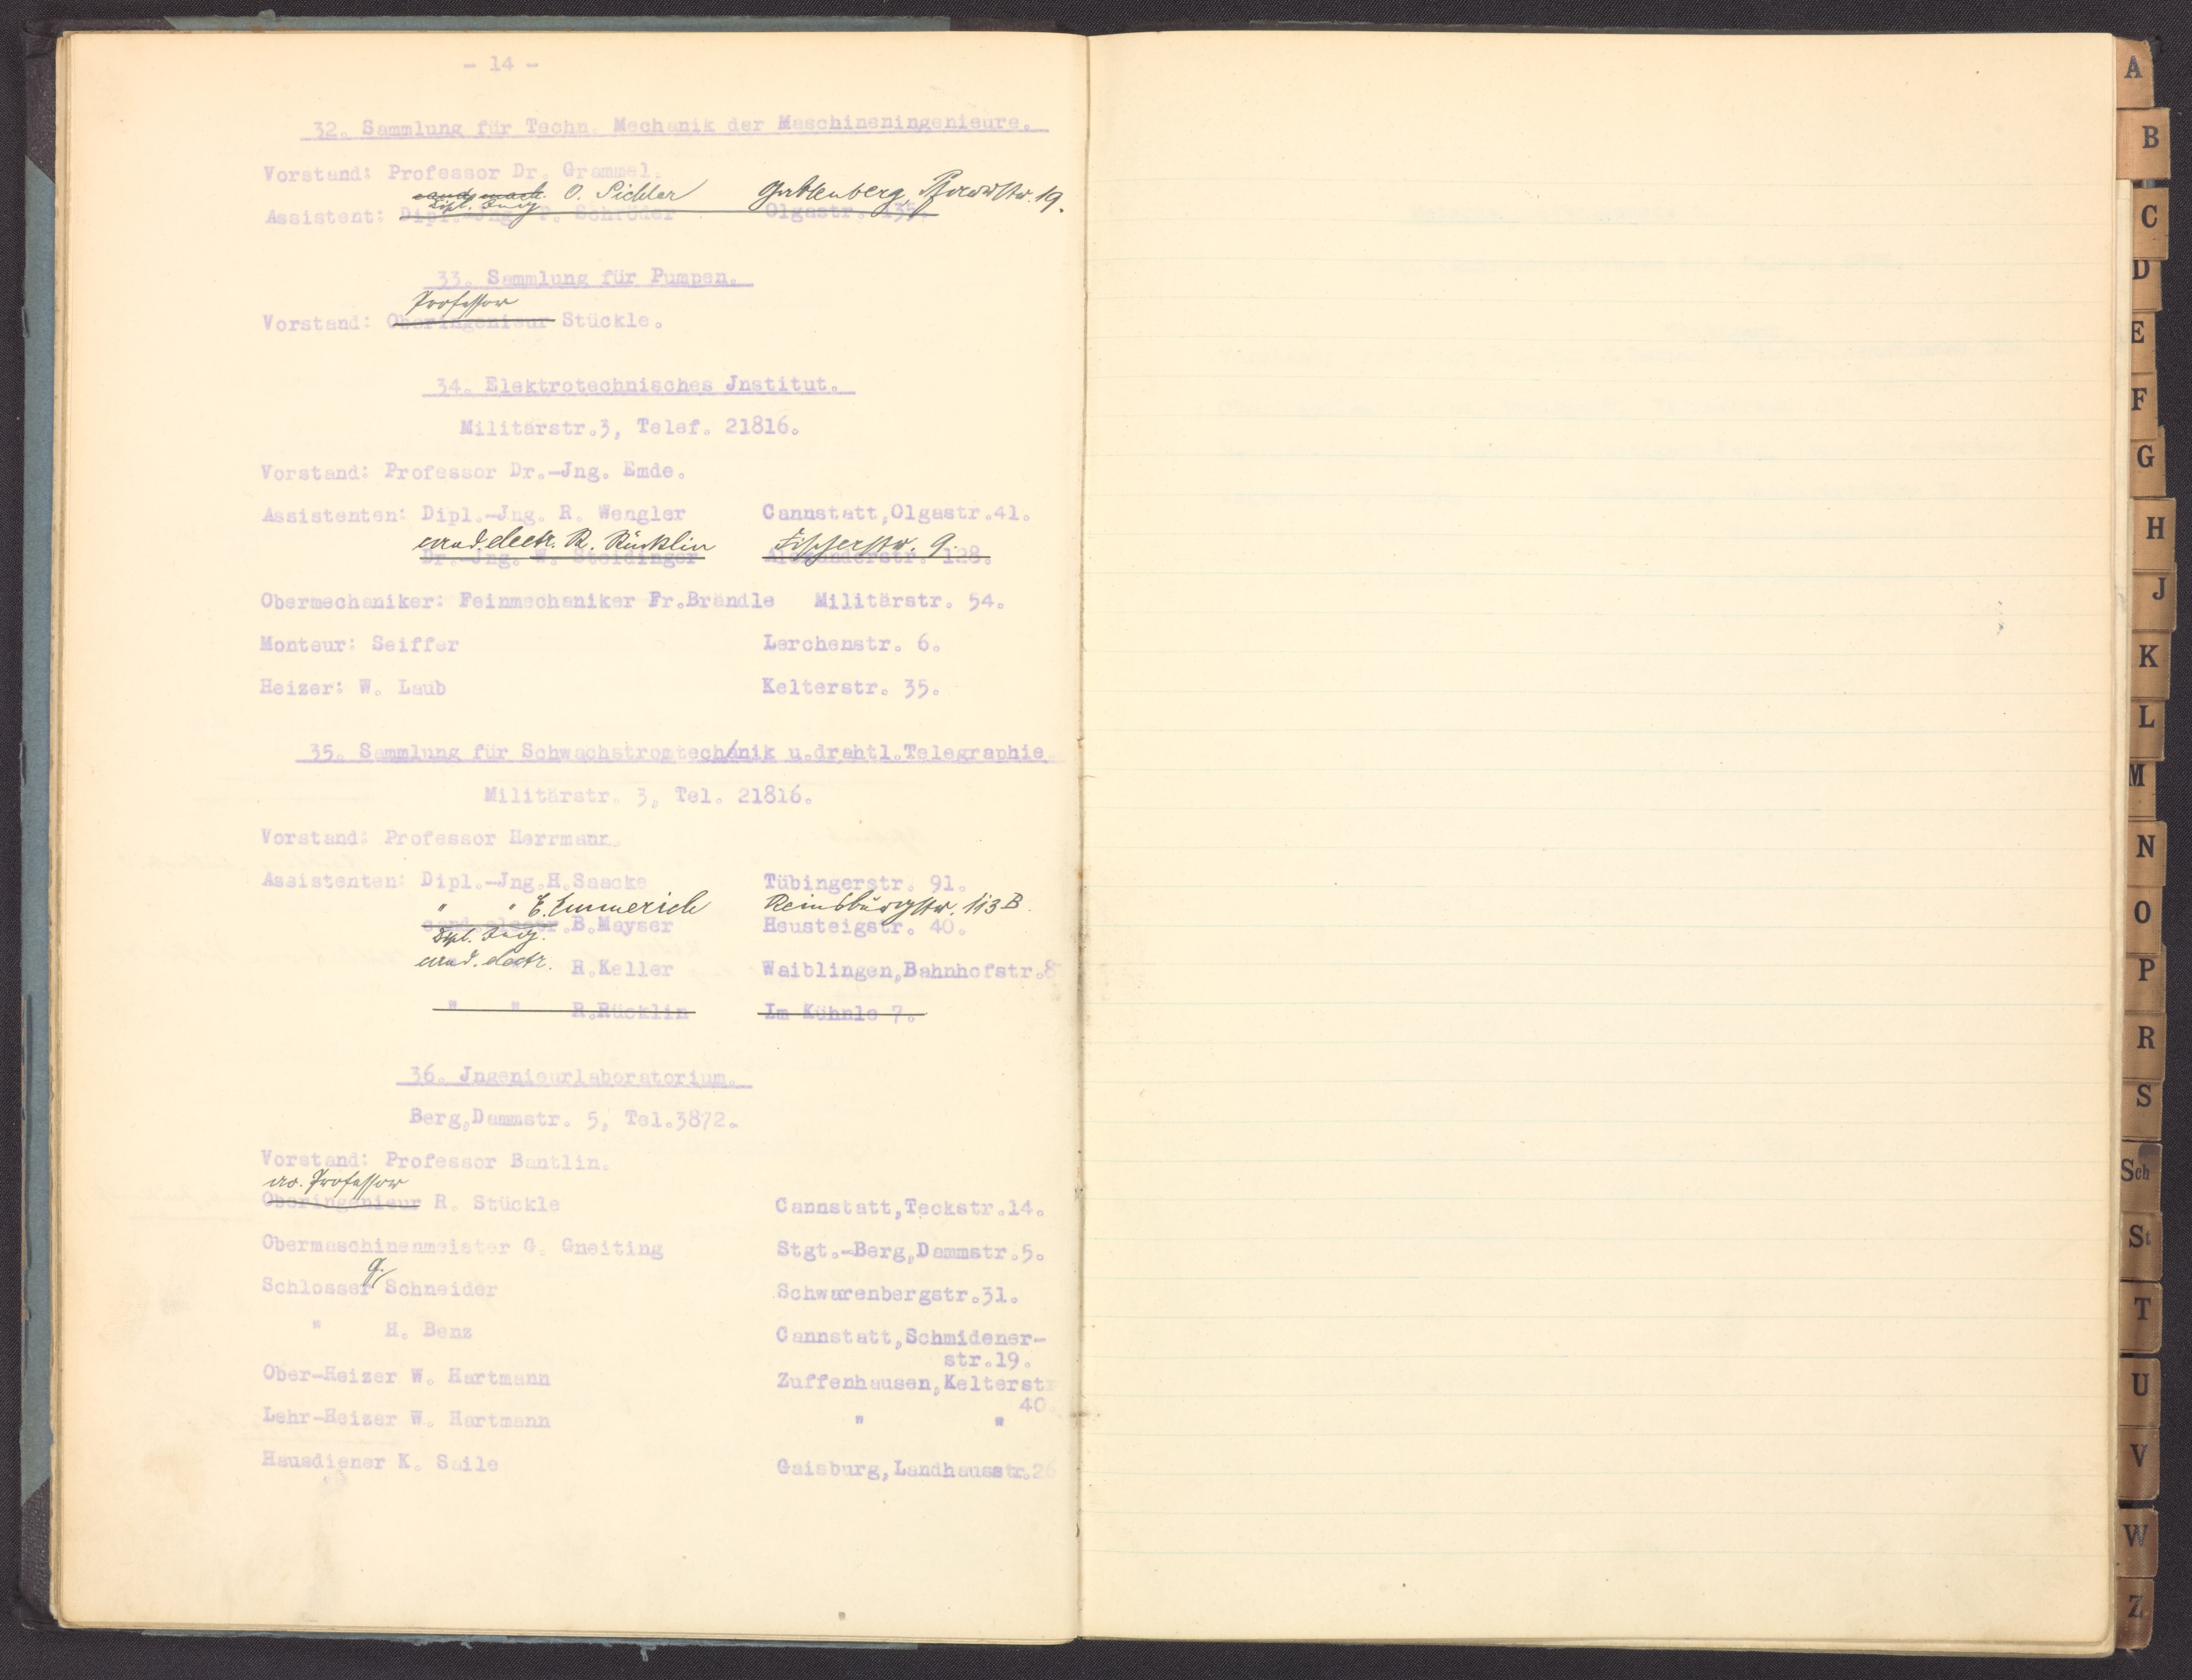 - 14 -
32. Sammlung für Techn. Mechanik der Maschineningenieure.
Vorstand: Professor Dr. Grammel.
cand. mach. O. Pichler
Dipl. Jng.
Assistent: Dipl.-Jng. P. Schröder Olgastr. 135.
33. Sammlung für Pumpen.
Professor
Vorstand: Oberingenieur Stückle.
34. Elektrotechnisches Jnstitut.
Militärstr.3, Telef. 21816.
Vorstand: Professor Dr.-Jng. Emde.
Assistenten: Dipl.-Jng. R. Wengler Cannstatt,Olgastr.41.
cand. electr. R. Rücklin Fischerstr. 9.
Dr.-Jng. W. Steidinger Alexanderstr. 128.
Obermechaniker: Feinmechaniker Fr.Brändle Militärstr. 54.
Monteur: Seiffer Lerchenstr. 6.
Heizer: W. Laub Kelterstr. 35.
35. Sammlung für Schwachstromtechnik u.drahtl.Telegraphie
Militärstr. 3, Tel. 21816.
Vorstand: Professor Herrmann.
Assistenten: Dipl.-Jng.H.Saacke Tübingerstr. 91.
" " E. Emmerich Reinsburgstr. 113 B.
cand.electr.B.Mayser Heusteigstr. 40.
Dipl. Jng.
cand. electr. R.Keller Waiblingen,Bahnhofstr.8
" " R.Rücklin Im Kühnle 7.
36. Jngenieurlaboratorium.
Berg,Dammstr. 5, Tel.3872.
Vorstand: Professor Bantlin.
ao. Professor
Oberingenieur R. Stückle Cannstatt,Teckstr.14.
Obermaschinenmeister G. Gneiting Stgt.-Berg,Dammstr.5.
G.
Schlosser Schneider Schwarenbergstr.31.
" H. Benz Cannstatt,Schmidener-
str.19.
Ober-Heizer W. Hartmann Zuffenhausen,Kelterstr
40.
Lehr-Heizer W. Hartmann " "
Hausdiener K. Saile Gaisburg,Landhausstr.26
A
B
C
D
E
F
G
H
J
K
L
M
N
O
P
R
S
Sch
St
T
U
V
W
Z